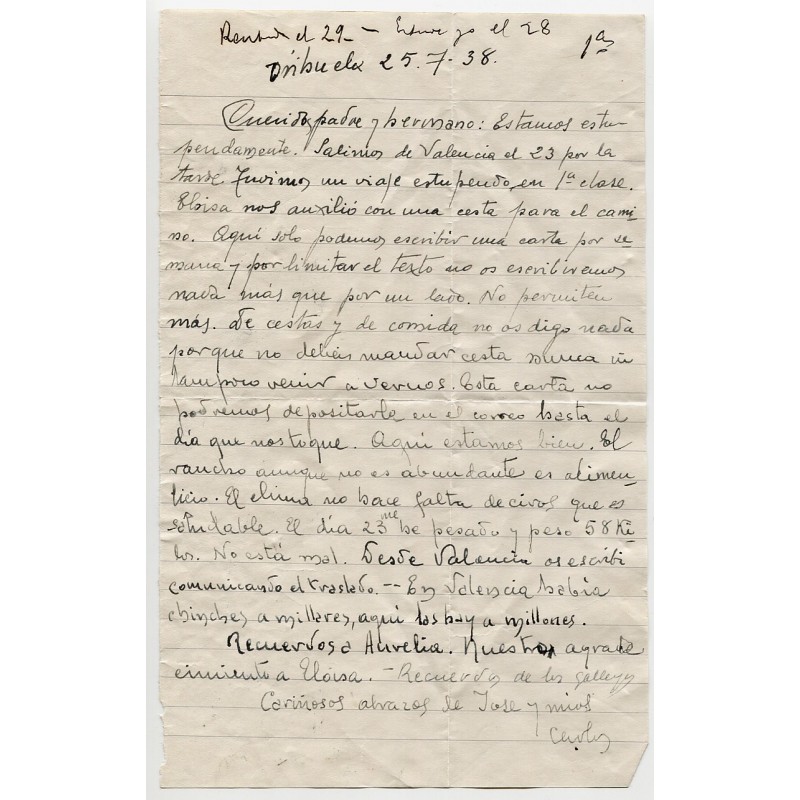 el 29 — el 28
1ª
Orihuela 25.7.38.
Queridos padre y hermano: Estamos estu-
pendamente. Salimos de Valencia el 23 por la
tarde. Tuvimos un viaje estupendo, en 1ª clase.
Eloisa nos auxilió con una cesta para el cami-
no. Aquí solo podemos escribir una carta por se-
mana y por limitar el texto no os escribiremos
nada más que por un lado. No permiten
más. De cestas y de comida no os digo nada
porque no debéis mandar cesta nunca ni
tampoco venir a vernos. Esta carta no
podremos depositarla en el correo hasta el
día que nos toque. Aquí estamos bien. El
rancho aunque no es abundante es alimen-
ticio. El clima no hace falta deciros que es
saludable. El día 23 me he pesado y peso 58 Ki-
los. No está mal. Desde Valencia os escribí
comunicando el traslado. -- En Valencia había
chinches a millares, aquí las hay a millones.
Recuerdos a Aurelia. Nuestro agrade
cimiento a Eloisa. - Recuerdos de los gallegos
Cariñosos abrazos de Jose y mios
Carlos